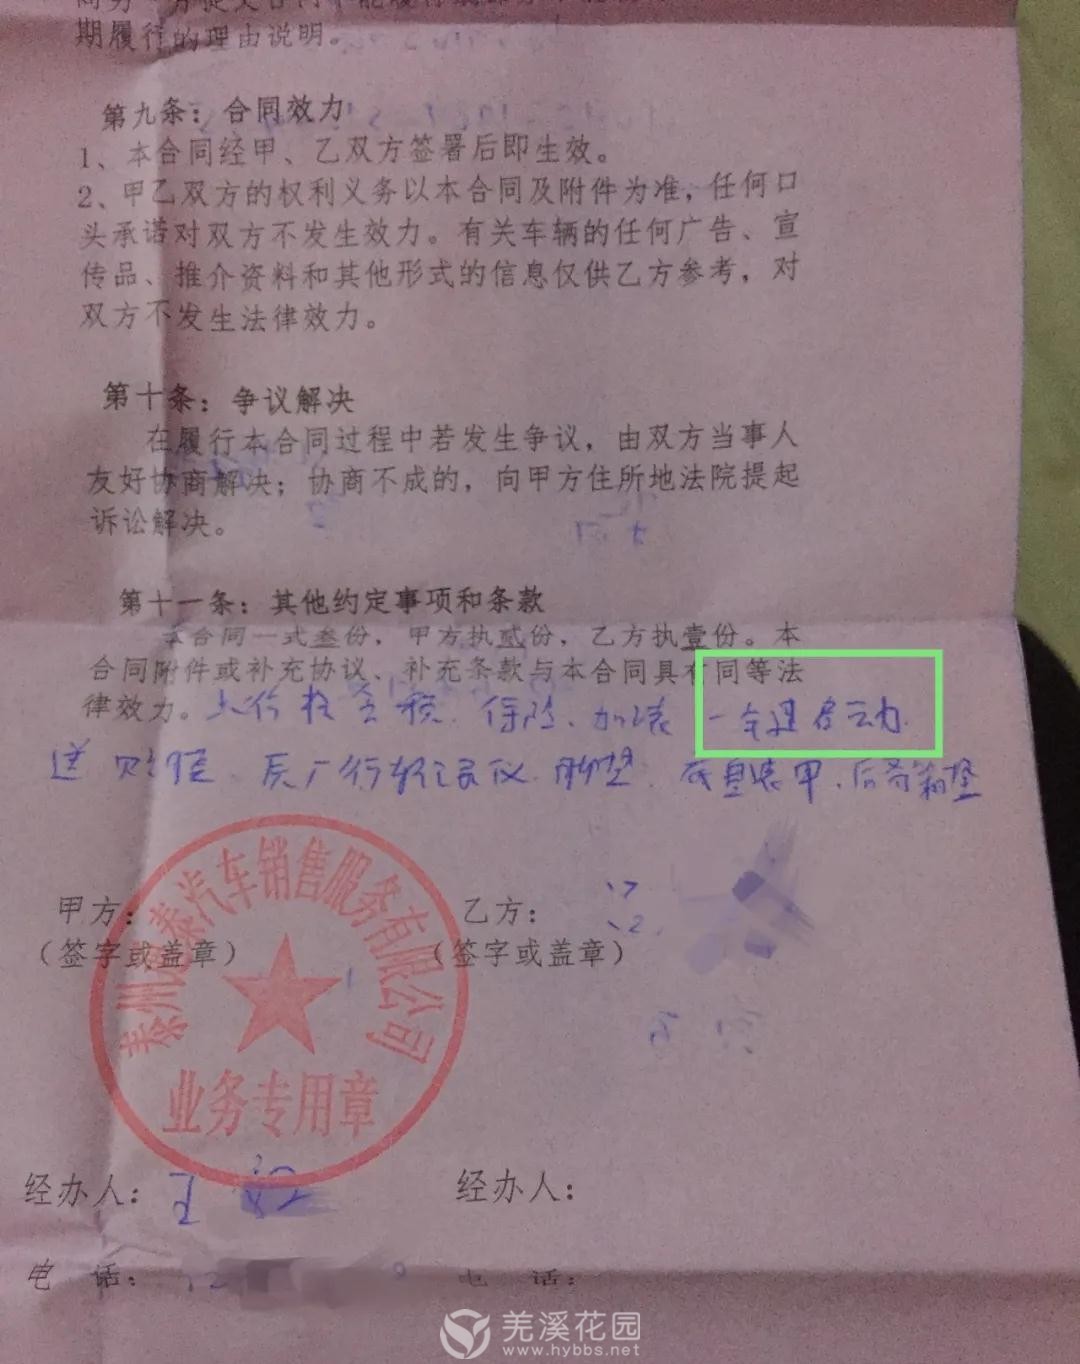 期履行的理由说明。
第九条：合同效力
1、本合同经甲、乙双方签署后即生效。
2、甲乙双方的权利义务以本合同及附件为准，任何口
头承诺对双方不发生效力。有关车辆的任何广告、宣
传品、推介资料和其他形式的信息仅供乙方参考，对
双方不发生法律效力。
第十条：争议解决
在履行本合同过程中若发生争议，由双方当事人
友好协商解决；协商不成的，向甲方住所地法院提起
诉讼解决。
第十一条：其他约定事项和条款
本合同一式叁份，甲方执贰份，乙方执壹份。本
合同附件或补充协议、补充条款与本合同具有同等法
律效力。 保险、加装 一键启动
送 原厂行车记录仪 脚垫 底盘装甲、后备箱垫
甲方： 乙方：
（签字或盖章） （签字或盖章）
泰州 泰汽车销售服务有限公司
业务专用章
经办人：王 经办人：
电 话： 电 话：
羌溪花园
www.hybbs.net